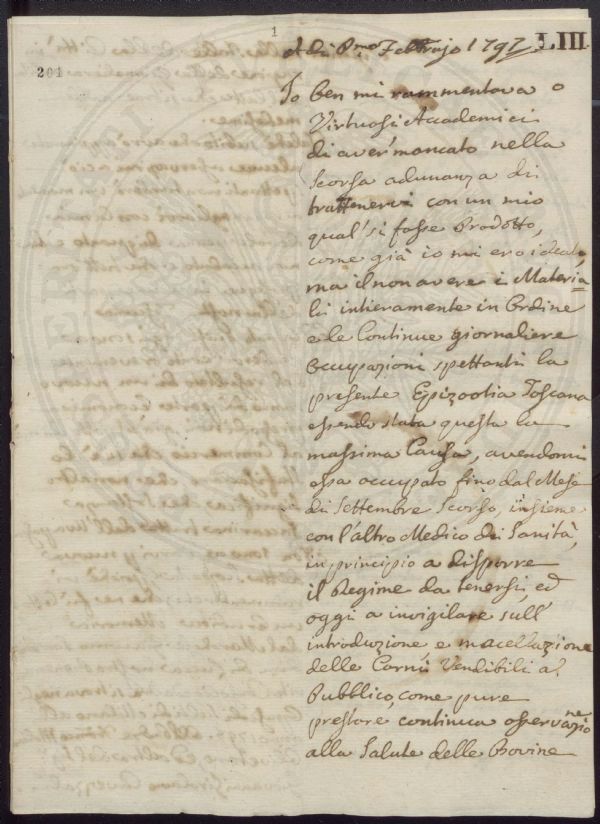 1
201
LIII.
A dì P.mo Febbrajo 1797
Io ben mi rammentava o
Virtuosi Accademici
di aver' mancato nella
scorsa adunanza di
trattenervi con un mio
qual' si fosse Prodotto,
come già io mi ero ideato,
ma il non avere i Materia
li intieramente in Ordine
e le Continue giornaliere
occupazioni spettanti la
presente Epizootia Toscana
essendo stata questa la
massima Causa, avendomi
essa occupato fino dal Mese
di Settembre Scorso, insieme
con l'altro Medico di Sanità,
in principio a disporre
il Regime da tenersi, ed
oggi a invigilare sull'
introduzione, e macellazione
delle Carni Vendibili al
Pubblico, come pure
prestare continua osservazio
ne
alla Salute delle Bovine